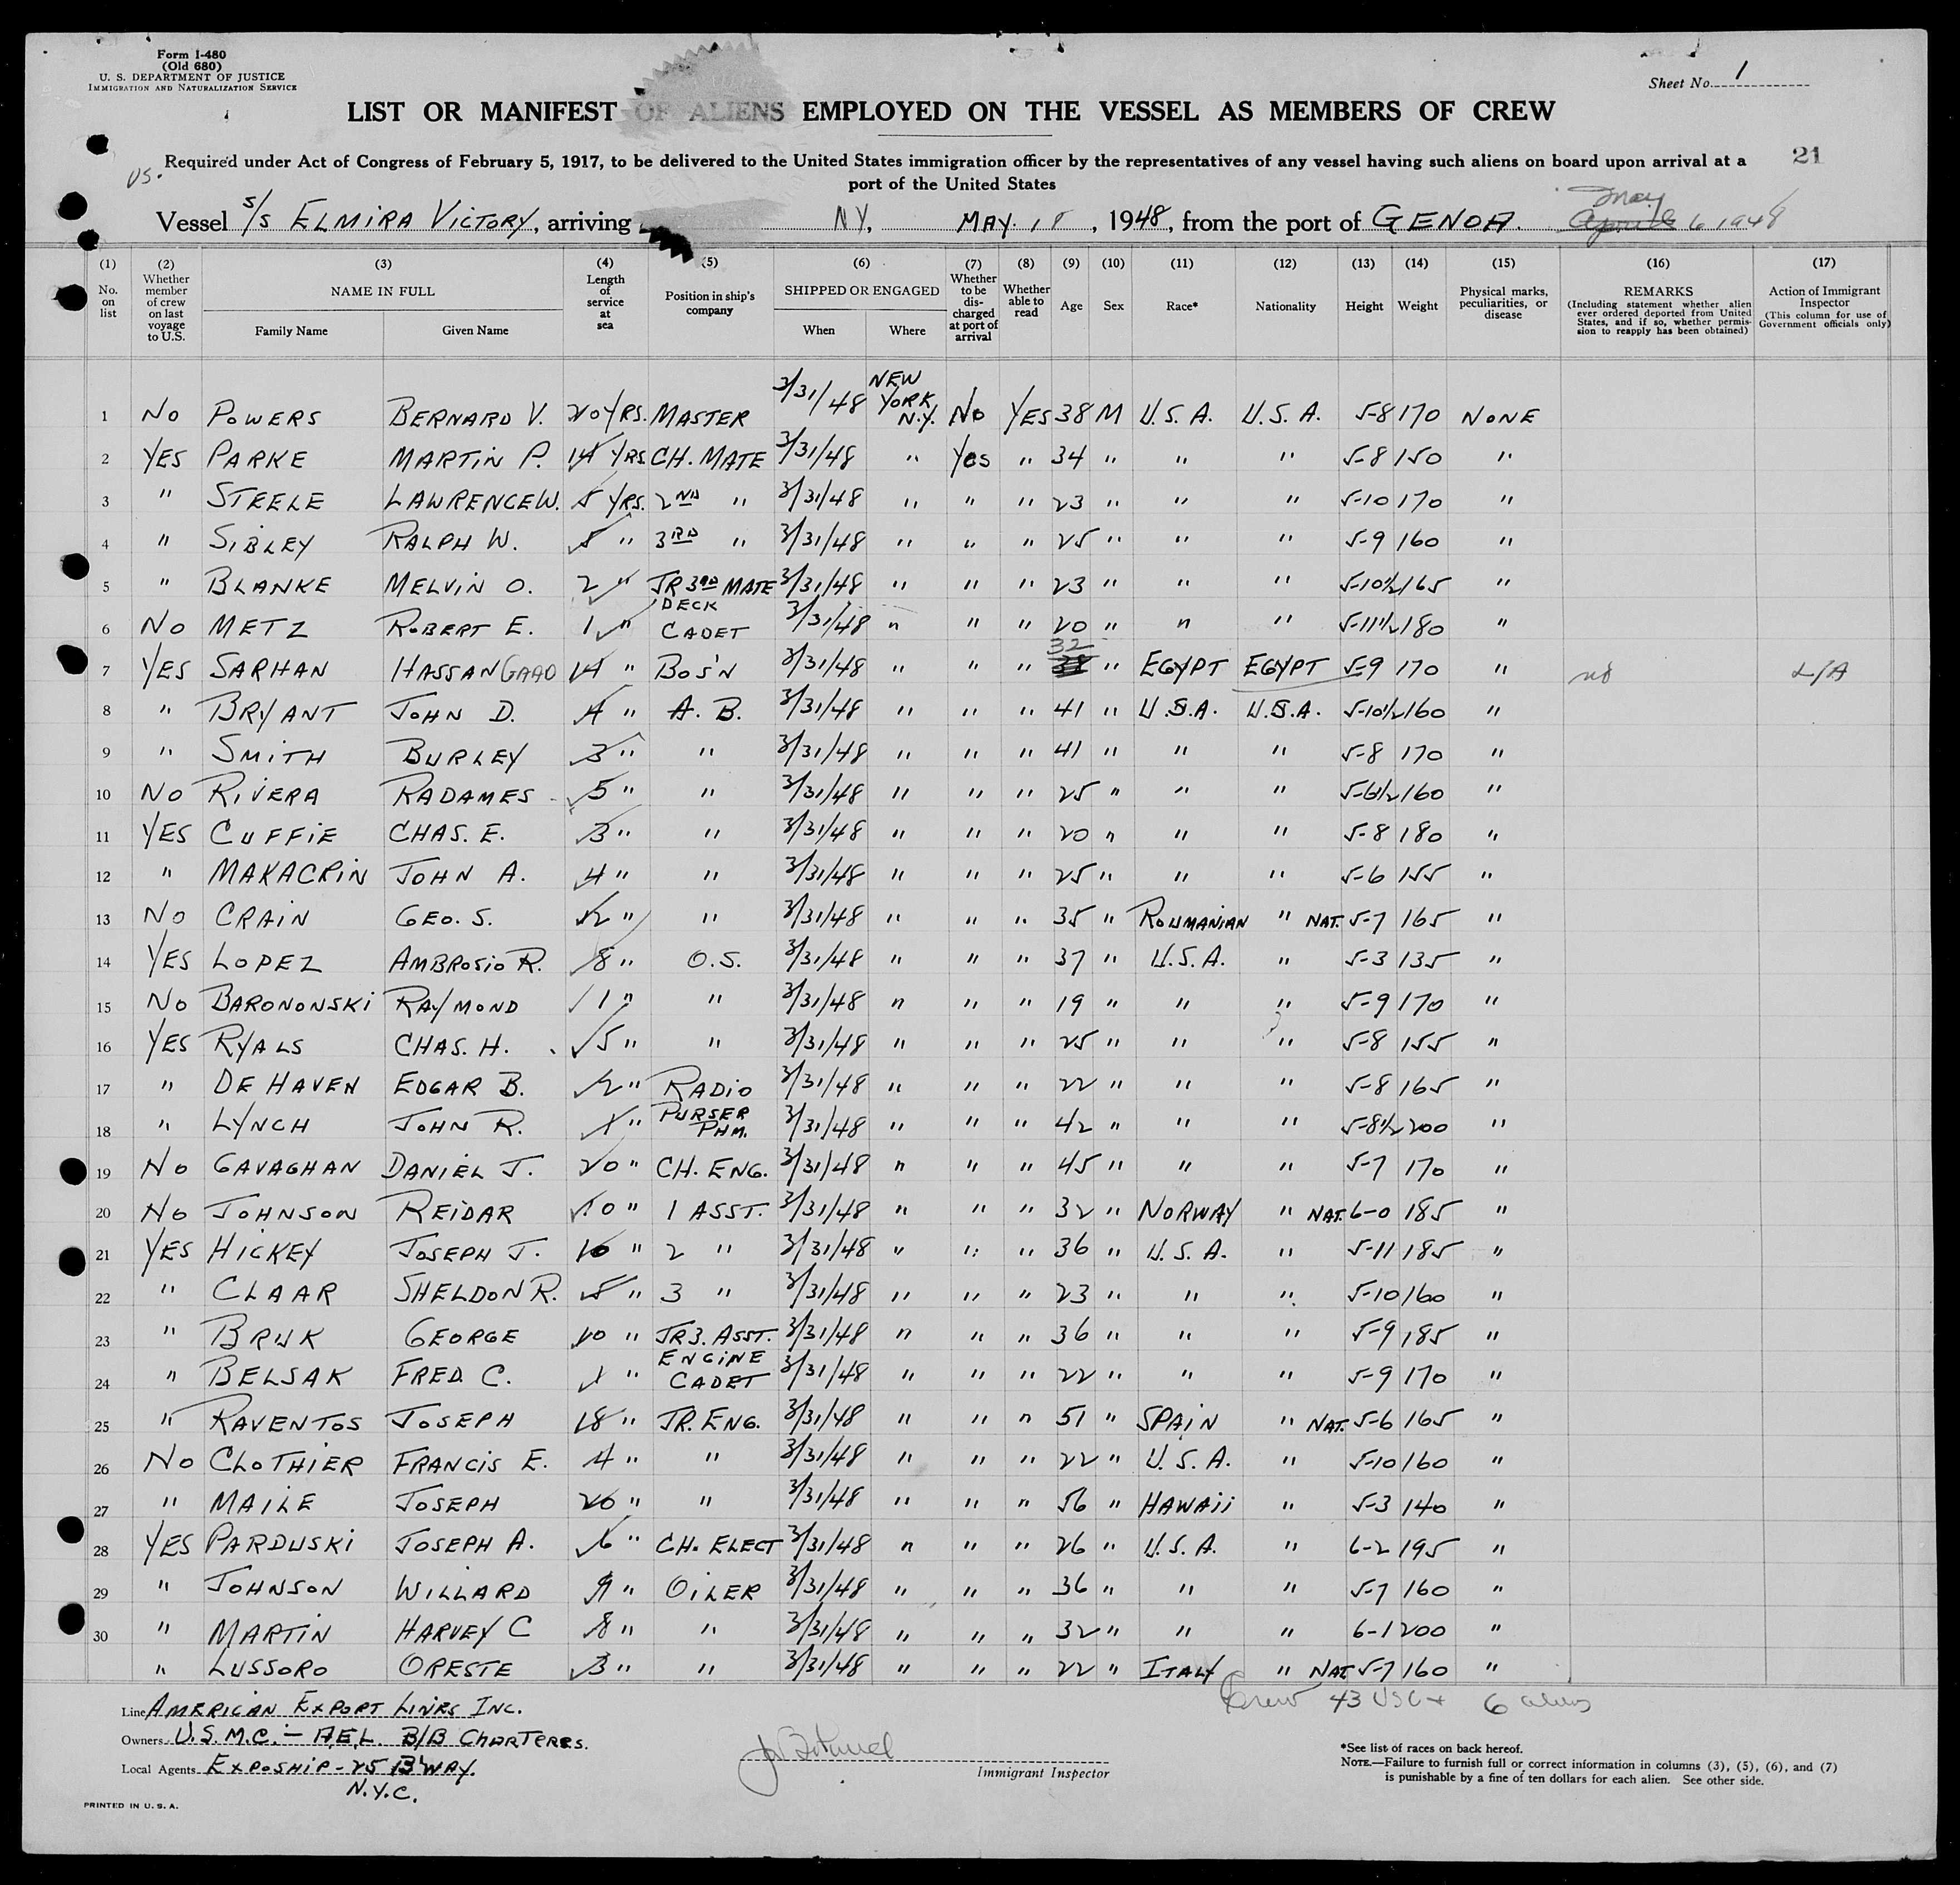 Form I-480
(Old 680)
U. S. DEPARTMENT OF JUSTICE
IMMIGRATION AND NATURALIZATION SERVICE
Sheet No. 1
LIST OR MANIFEST OF ALIENS EMPLOYED ON THE VESSEL AS MEMBERS OF CREW
21
Required under Act of Congress of February 5, 1917, to be delivered to the United States immigration officer by the representatives of any vessel having such aliens on board upon arrival at a
port of the United States
US.
May
Vessel S/S ELMIRA VICTORY, arriving NY, MAY. 18, 1948, from the port of GENOA. April 6 1948
(1) No. on list
(2) Whether member of crew on last voyage to U.S.
(3) NAME IN FULL Family Name Given Name
(4) Length of service at sea
(5) Position in ship's company
(6) SHIPPED OR ENGAGED When Where
(7) Whether to be discharged at port of arrival
(8) Whether able to read
(9) Age
(10) Sex
(11) Race*
(12) Nationality
(13) Height
(14) Weight
(15) Physical marks, peculiarities, or disease
(16) REMARKS (Including statement whether alien ever ordered deported from United States, and if so, whether permission to reapply has been obtained)
(17) Action of Immigrant Inspector (This column for use of Government officials only)
1 NO POWERS BERNARD V. 20 YRS. MASTER 3/31/48 NEW YORK, N.Y. NO YES 38 M U.S.A. U.S.A. 5-8 170 NONE
2 YES PARKE MARTIN P. 14 YRS CH. MATE 3/31/48 " Yes " 34 " " " 5-8 150 "
3 " STEELE LAWRENCE W. 5 YRS. 2ND " 3/31/48 " " " 23 " " " 5-10 170 "
4 " SIBLEY RALPH W. 5 " 3RD " 3/31/48 " " " 25 " " " 5-9 160 "
5 " BLANKE MELVIN O. 2 " JR 3RD MATE 3/31/48 " " " 23 " " " 5-10½ 165 "
6 NO METZ ROBERT E. 1 " DECK CADET 3/31/48 " " " 20 " " " 5-11½ 180 "
7 YES SARHAN HASSAN GAAD 14 " BOS'N 3/31/48 " " " 32 38 " EGYPT EGYPT 5-9 170 " no L/A
8 " BRYANT JOHN D. 4 " A. B. 3/31/48 " " " 41 " U.S.A. U.S.A. 5-10½ 160 "
9 " SMITH BURLEY 3 " " 3/31/48 " " " 41 " " " 5-8 170 "
10 NO RIVERA RADAMES 5 " " 3/31/48 " " " 25 " " " 5-6½ 160 "
11 YES CUFFIE CHAS. E. 3 " " 3/31/48 " " " 20 " " " 5-8 180 "
12 " MAKACRIN JOHN A. 4 " " 3/31/48 " " " 25 " " " 5-6 155 "
13 NO CRAIN GEO. S. 12 " " 3/31/48 " " " 35 " ROUMANIAN " NAT. 5-7 165 "
14 YES LOPEZ AMBROSIO R. 8 " O.S. 3/31/48 " " " 37 " U.S.A. " 5-3 135 "
15 NO BARONONSKI RAYMOND 1 " " 3/31/48 " " " 19 " " " 5-9 170 "
16 YES RYALS CHAS. H. 5 " " 3/31/48 " " " 25 " " " 5-8 155 "
17 " DE HAVEN EDGAR B. 2 " RADIO 3/31/48 " " " 22 " " " 5-8 165 "
18 " LYNCH JOHN R. 1 " PURSER PHM. 3/31/48 " " " 42 " " " 5-8½ 200 "
19 NO GAVAGHAN DANIEL J. 20 " CH. ENG. 3/31/48 " " " 45 " " " 5-7 170 "
20 NO JOHNSON REIDAR 10 " 1 ASST. 3/31/48 " " " 32 " NORWAY " NAT. 6-0 185 "
21 YES HICKEY JOSEPH J. 16 " 2 " 3/31/48 " " " 36 " U.S.A. " 5-11 185 "
22 " CLAAR SHELDON R. 5 " 3 " 3/31/48 " " " 23 " " " 5-10 160 "
23 " BRUK GEORGE 10 " JR 3. ASST. 3/31/48 " " " 36 " " " 5-9 185 "
24 " BELSAK FRED. C. 1 " ENGINE CADET 3/31/48 " " " 22 " " " 5-9 170 "
25 " RAVENTOS JOSEPH 18 " JR. ENG. 3/31/48 " " " 51 " SPAIN " NAT. 5-6 165 "
26 NO CLOTHIER FRANCIS E. 4 " " 3/31/48 " " " 22 " U.S.A. " 5-10 160 "
27 " MAILE JOSEPH 20 " " 3/31/48 " " " 56 " HAWAII " 5-3 140 "
28 YES PARDUSKI JOSEPH A. 6 " CH. ELECT 3/31/48 " " " 26 " U.S.A. " 6-2 195 "
29 " JOHNSON WILLARD 9 " OILER 3/31/48 " " " 36 " " " 5-7 160 "
30 " MARTIN HARVEY C 8 " " 3/31/48 " " " 32 " " " 6-1 200 "
" LUSSORO ORESTE 3 " " 3/31/48 " " " 22 " ITALY " NAT 5-7 160 "
Crew 43 USC + 6 aliens
Line AMERICAN EXPORT LINES INC.
Owners U.S.M.C. - A.E.L. B/B CHARTERERS.
Local Agents EXPOSHIP - 25 B'WAY.
N.Y.C.
Immigrant Inspector
*See list of races on back hereof.
NOTE.—Failure to furnish full or correct information in columns (3), (5), (6), and (7)
is punishable by a fine of ten dollars for each alien. See other side.
PRINTED IN U. S. A.